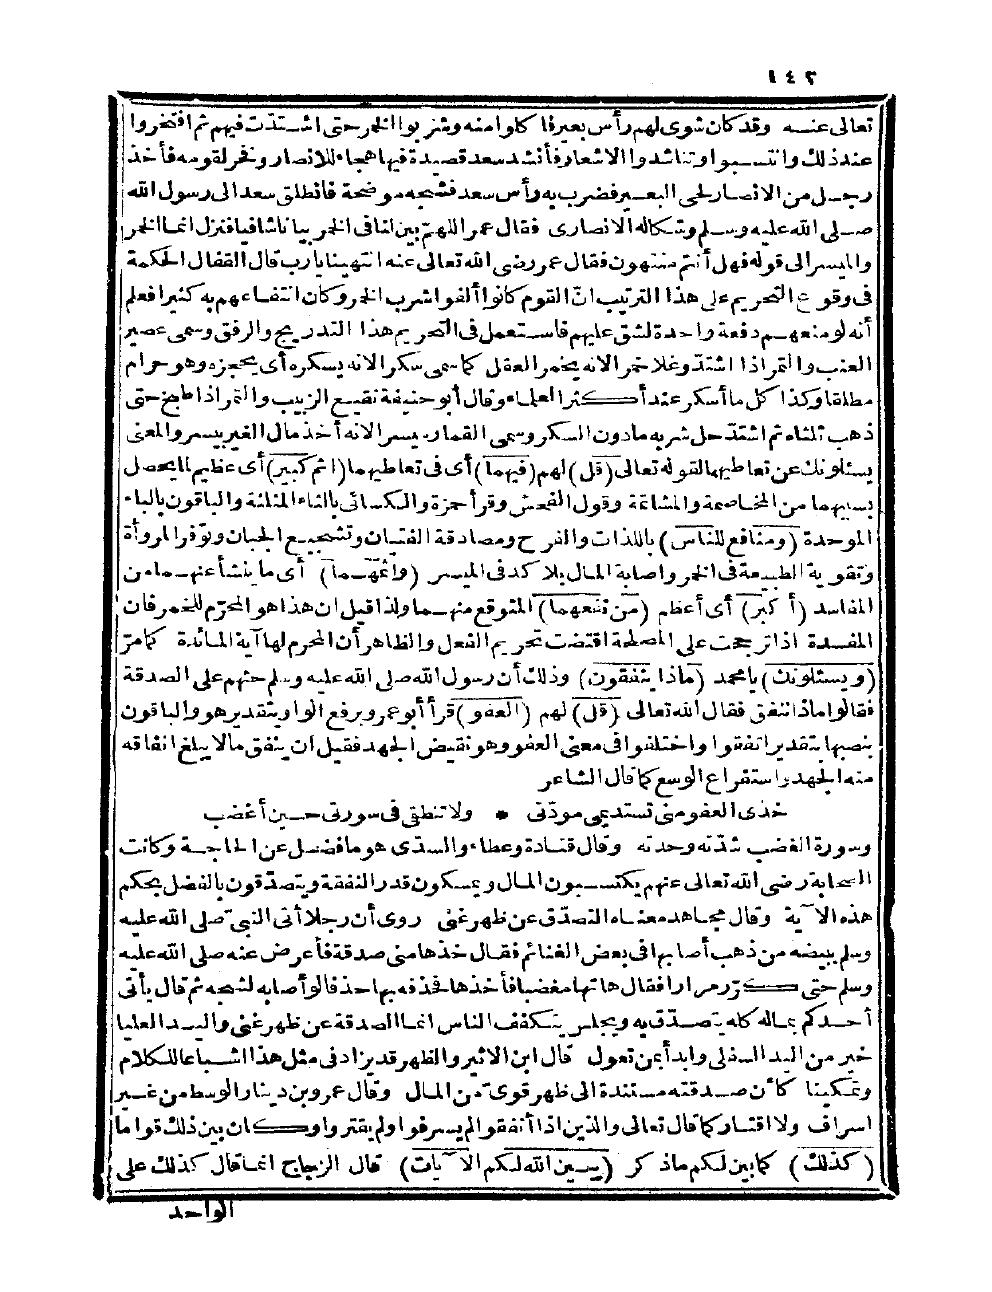 ١٤٢
تعالى عنه وقد كان شوى لهم رأس بعير فأكلوا منه وشربوا الخمر حتى اشتدّت فيهم ثم افتخروا
عند ذلك وانتسبوا وتناشدوا الاشعار فأنشد سعد قصيدة فيها هجاء للانصار وفخر لقومه فأخذ
رجل من الانصار لحي البعير فضرب به رأس سعد فشجه موضحة فانطلق سعد الى رسول الله
صلى الله عليه وسلم وشكاله الانصارى فقال عمر اللهمّ بين لنا فى الخمر بيانا شافيا فنزل انما الخمر
والميسر الى قوله فهل أنتم منتهون فقال عمر رضى الله تعالى عنه انتهينا يا رب قال القفال الحكمة
فى وقوع التحريم على هذا الترتيب انّ القوم كانوا ألفوا شرب الخمر وكان انتفاءهم به كثيرا فعلم
أنه لو منعهم دفعة واحدة لشق عليهم فاستعمل فى التحريم هذا التدريج والرفق وسمى عصير
العنب والتمر اذا اشتدّ وغلا خمرا لانه يخمر العقل كما سمى سكرا لانه يسكره أى يحجزه وهو حرام
مطلقا وكذا كل ما أسكر عند أكثر العلماء وقال أبو حنيفة نقيع الزبيب والتمر اذا طبخ حتى
ذهب ثلثاه ثم اشتدّ حل شربه مادون السكر وسمى القمار ميسرا لانه أخذ مال الغير بيسر والمعنى
يسئلونك عن تعاطيهما لقوله تعالى (قل) لهم (فيهما) أى فى تعاطيهما (اثم كبير) أى عظيم لما يحصل
بسببهما من المخاصمة والمشاتمة وقول الفحش وقرأ حمزة والكسائى بالثاء المثلثة والباقون بالباء
الموحدة (ومنافع للناس) باللذات والفرح ومصادقة الفتيان وتشجيع الجبان وتوفر المروأة
وتقوية الطبيعة فى الخمر واصابة المال بلا كد فى الميسر (واثمهما) أى ما ينشأ عنهما من
المفاسد (أكبر) أى أعظم (من نفعهما) المتوقع منهما ولذا قيل ان هذا هو المحرّم للخمر فان
المفسدة اذا ترجحت على المصلحة اقتضت تحريم الفعل والظاهر أن المحرم لها آية المائدة كما مرّ
(ويسئلونك) يا محمد (ماذا ينفقون) وذلك أن رسول الله صلى الله عليه وسلم حثهم على الصدقة
فقالوا ماذا ننفق فقال الله تعالى (قل) لهم (العفو) قرأ أبو عمرو برفع الواو بتقدير هو والباقون
بنصبها بتقدير انفقوا واختلفوا فى معنى العفو وهو نقيض الجهد فقيل ان ينفق مالا يبلغ انفاقه
منه الجهد واستفراغ الوسع كما قال الشاعر
خذى العفو منى تستديمى مودّتى * ولا تنطقى فى سورتى حين أغضب
وسورة الغضب شدّته وحدته وقال قتادة وعطاء والسدى هو ما فضل عن الحاجة وكانت
الصحابة رضى الله تعالى عنهم يكتسبون المال ويمسكون قدر النفقة ويتصدّقون بالفضل بحكم
هذه الآية وقال مجاهد معناه التصدّق عن ظهر غنى روى أن رجلا أتى النبىّ صلى الله عليه
وسلم ببيضه من ذهب أصابها فى بعض الغنائم فقال خذها منى صدقة فأعرض عنه صلى الله عليه
وسلم حتى كرّر مرارا فقال هاتها مغضبا فأخذها فحذفه بها حذفا لو أصابه لشجه ثم قال يأتى
أحدكم بماله كله يتصدّق به ويجلس يتكفف الناس انما الصدقة عن ظهر غنى واليد العليا
خير من اليد السفلى وابدأ بمن تعول قال ابن الاثير والظهر قد يزاد فى مثل هذا اشباعا للكلام
وتمكينا كأن صدقته مستندة الى ظهر قوى من المال وقال عمرو بن دينار الوسط من غير
اسراف ولا اقتار كما قال تعالى والذين اذا أنفقوا لم يسرفوا ولم يقتروا وكان بين ذلك قواما
(كذلك) كما بين لكم ماذكر (يبين الله لكم الآيات) قال الزجاج انما قال كذلك على
الواحد